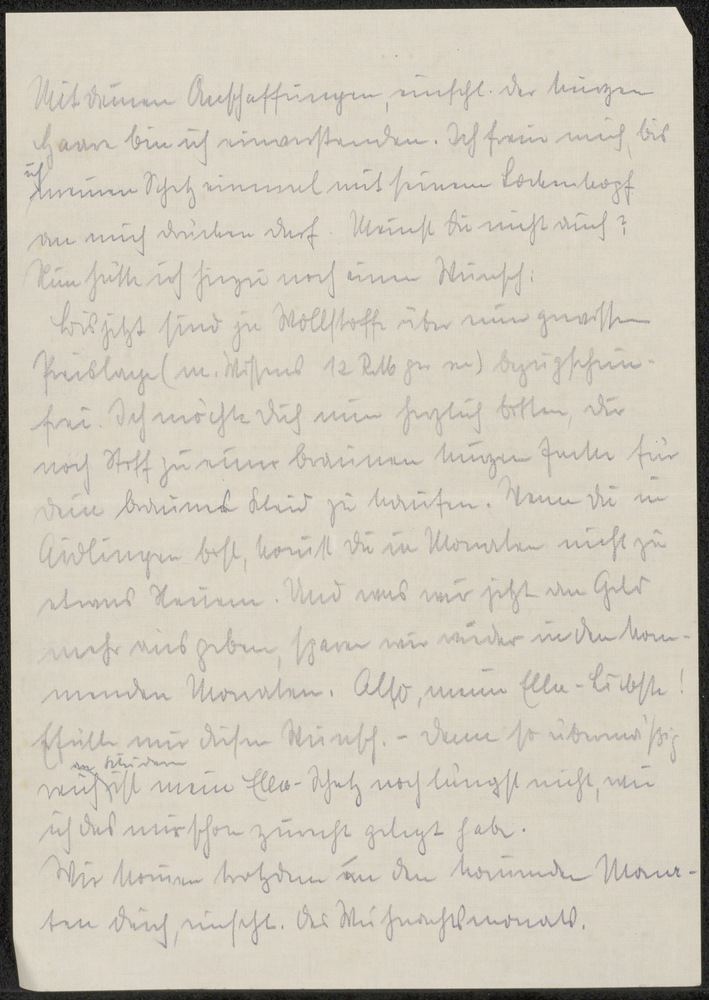 Mit deinen Anschaffungen, einschl. der kurzen
Haare bin ich einverstanden. Ich freue mich, bis
ich
meinen Schatz einmal mit seinem Lockenkopf
an mich drücken darf. Meinst du nicht auch?
Nun hätte ich hiezu noch einen Wunsch:
Bis jetzt sind ja Wollstoffe über eine gewissen
Preislage (m. Wissens 12 RM per m) bezugschein-
frei. Ich möchte dich nun herzlich bitten, dir
noch Stoff zu einer braunen kurzen Jacke für
dein braunes Kleid zu kaufen. Wenn du in
Aidlingen bist, komst du in Monaten nicht zu
etwas Neuem. Und was wir jetzt an Geld
mehr ausgeben, sparen wir wieder in den kom-
menden Monaten. Also, meine Ella-Liebste!
Efülle mir diesen Wunsch. - denn so übermäßig
an Kleidern
reich ist mein Ella-Schatz noch längst nicht, wie
ich das mir schon zurecht gelegt habe.
Wir komen trotzdem in den kommenden Mona-
ten durch, einschl. des Weihnachtsmonats.